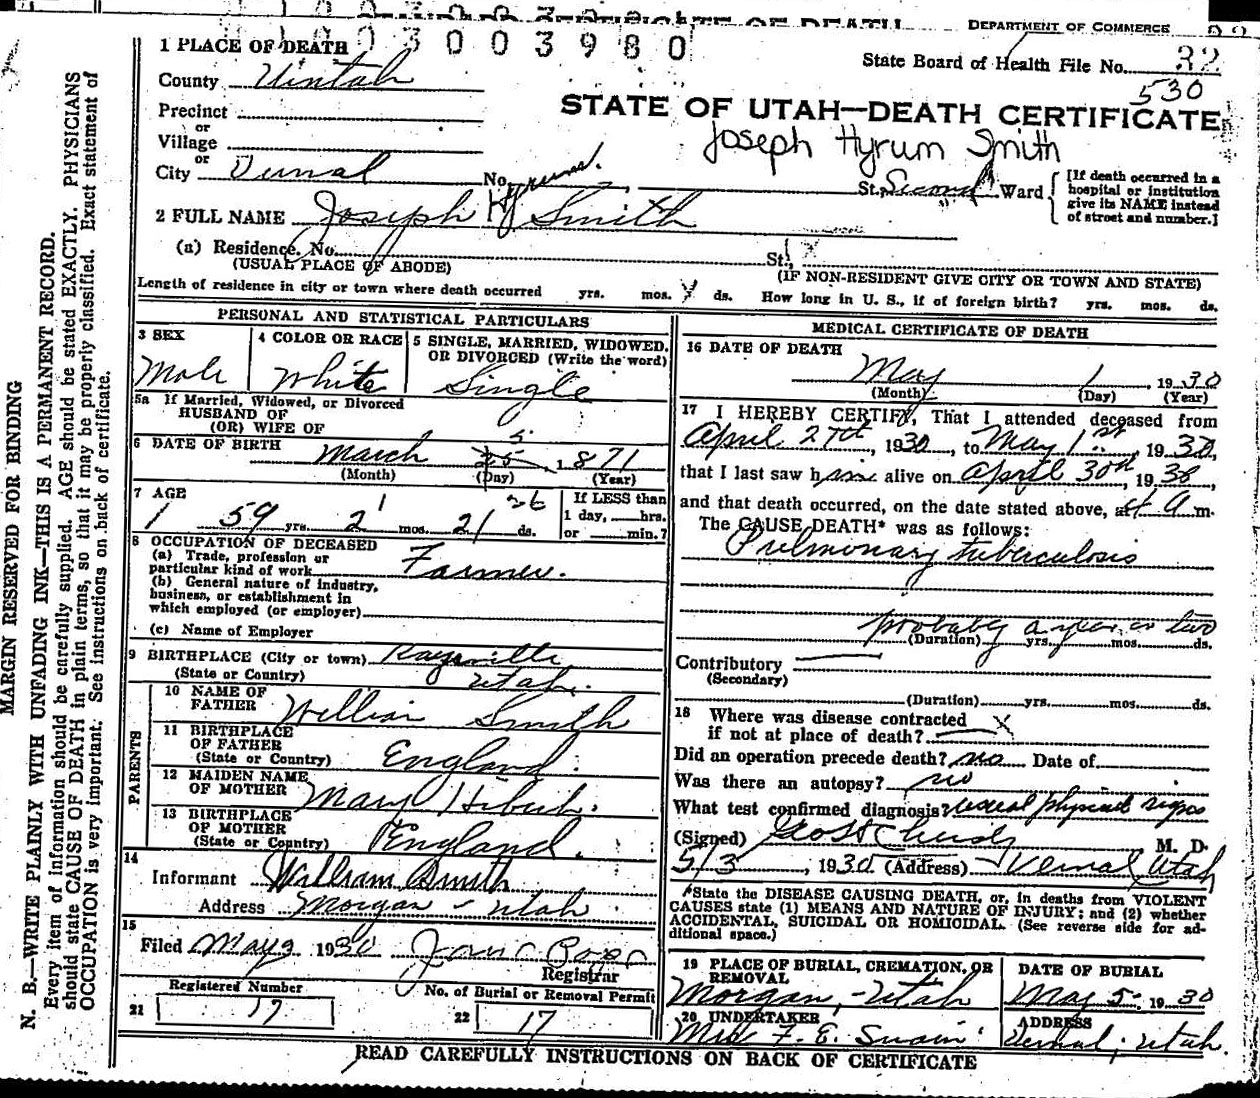 DEPARTMENT OF COMMERCE
1003003980
1 PLACE OF DEATH
State Board of Health File No. 32
County Uintah
530
Precinct
STATE OF UTAH—DEATH CERTIFICATE
or
Village
Joseph Hyrum Smith
or
City Vernal No. St., Second Ward
[If death occurred in a hospital or institution give its NAME instead of street and number.]
Hyrum
2 FULL NAME Joseph H Smith
(a) Residence. No. St.,
(USUAL PLACE OF ABODE) (IF NON-RESIDENT GIVE CITY OR TOWN AND STATE)
Length of residence in city or town where death occurred yrs. mos. ds. How long in U. S., if of foreign birth? yrs. mos. ds.
PERSONAL AND STATISTICAL PARTICULARS
3 SEX
Male
4 COLOR OR RACE
White
5 SINGLE, MARRIED, WIDOWED, OR DIVORCED (Write the word)
Single
5a If Married, Widowed, or Divorced
HUSBAND OF
(OR) WIFE OF
5
6 DATE OF BIRTH March 25, 1871
(Month) (Day) (Year)
7 AGE
1 26
59 yrs. 2 mos. 21 ds.
If LESS than
1 day, hrs.
or min.?
8 OCCUPATION OF DECEASED
(a) Trade, profession or
particular kind of work Farmer.
(b) General nature of industry,
business, or establishment in
which employed (or employer)
(c) Name of Employer
9 BIRTHPLACE (City or town) Kaysville
(State or Country) Utah.
PARENTS
10 NAME OF FATHER William Smith
11 BIRTHPLACE OF FATHER
(State or Country) England.
12 MAIDEN NAME OF MOTHER Mary
13 BIRTHPLACE OF MOTHER
(State or Country) England.
14
Informant William Smith
Address Morgan - Utah.
15
Filed May 9 1930
Registrar
Registered Number
21 17
No. of Burial or Removal Permit
22 17
MEDICAL CERTIFICATE OF DEATH
16 DATE OF DEATH
May 1, 1930
(Month) (Day) (Year)
17 I HEREBY CERTIFY, That I attended deceased from
April 27th, 1930, to May 1st, 1930,
that I last saw him alive on April 30th, 1930,
and that death occurred, on the date stated above, at a m.
The CAUSE DEATH* was as follows:
Pulmonary tuberculosis
probably a year or two
(Duration) yrs. mos. ds.
Contributory
(Secondary)
(Duration) yrs. mos. ds.
18 Where was disease contracted
if not at place of death? X
Did an operation precede death? no Date of
Was there an autopsy? no
What test confirmed diagnosis? usual physical signs
(Signed) M. D.
5/3, 1930 (Address) Vernal Utah
*State the DISEASE CAUSING DEATH, or, in deaths from VIOLENT
CAUSES state (1) MEANS AND NATURE OF INJURY; and (2) whether
ACCIDENTAL, SUICIDAL OR HOMICIDAL. (See reverse side for ad-
ditional space.)
19 PLACE OF BURIAL, CREMATION, OR REMOVAL
Morgan, - Utah
DATE OF BURIAL
May 5- 1930
20 UNDERTAKER
Mrs F. E. Swain
ADDRESS
Vernal, Utah.
READ CAREFULLY INSTRUCTIONS ON BACK OF CERTIFICATE
MARGIN RESERVED FOR BINDING
N. B.—WRITE PLAINLY WITH UNFADING INK—THIS IS A PERMANENT RECORD.
Every item of information should be carefully supplied. AGE should be stated EXACTLY. PHYSICIANS
should state CAUSE OF DEATH in plain terms, so that it may be properly classified. Exact statement of
OCCUPATION is very important. See instructions on back of certificate.